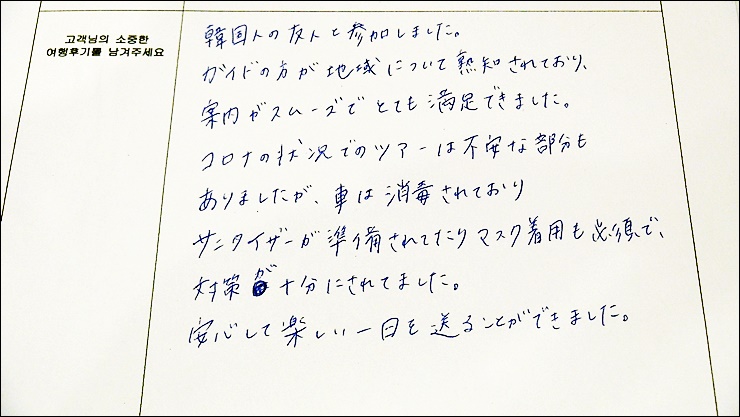 고객님의 소중한
여행후기를 남겨주세요
韓国人の友人と参加しました。
ガイドの方が地域について熟知されており、
案内がスムーズでとても満足できました。
コロナの状況でのツアーは不安な部分も
ありましたが、車は消毒されており
サニタイザーが準備されてたりマスク着用も必須で、
対策が十分にされてました。
安心して楽しい一日を送ることができました。